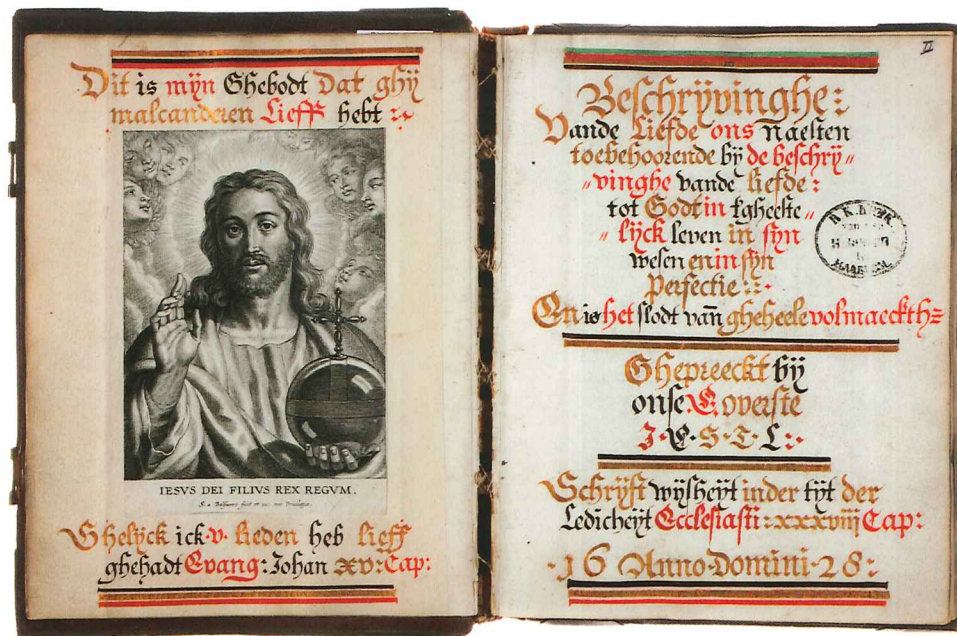 Dit is mijn Ghebodt Dat ghij
malcanderen Lieff hebt
IESVS DEI FILIVS REX REGVM.
Ghelyck ick v lieden heb lieff
ghehadt Evang: Johan xv: Cap:
II
Beschrijvinghe:
Vande Liefde ons naesten
toebehoorende bij de beschrij„
„vinghe vande liefde:
tot Godt in tgheeste„
„lijck leven in sijn
wesen en in sijn
perfectie
En is het slodt van gheheele volmaeckthz
Ghepreeckt bij
onse E. overste
J·E·S·T·L:
Schrijft wijsheijt inder tijt der
Ledicheijt Ecclesiasti: xxxviij Cap:
·16 Anno·Domini·28: